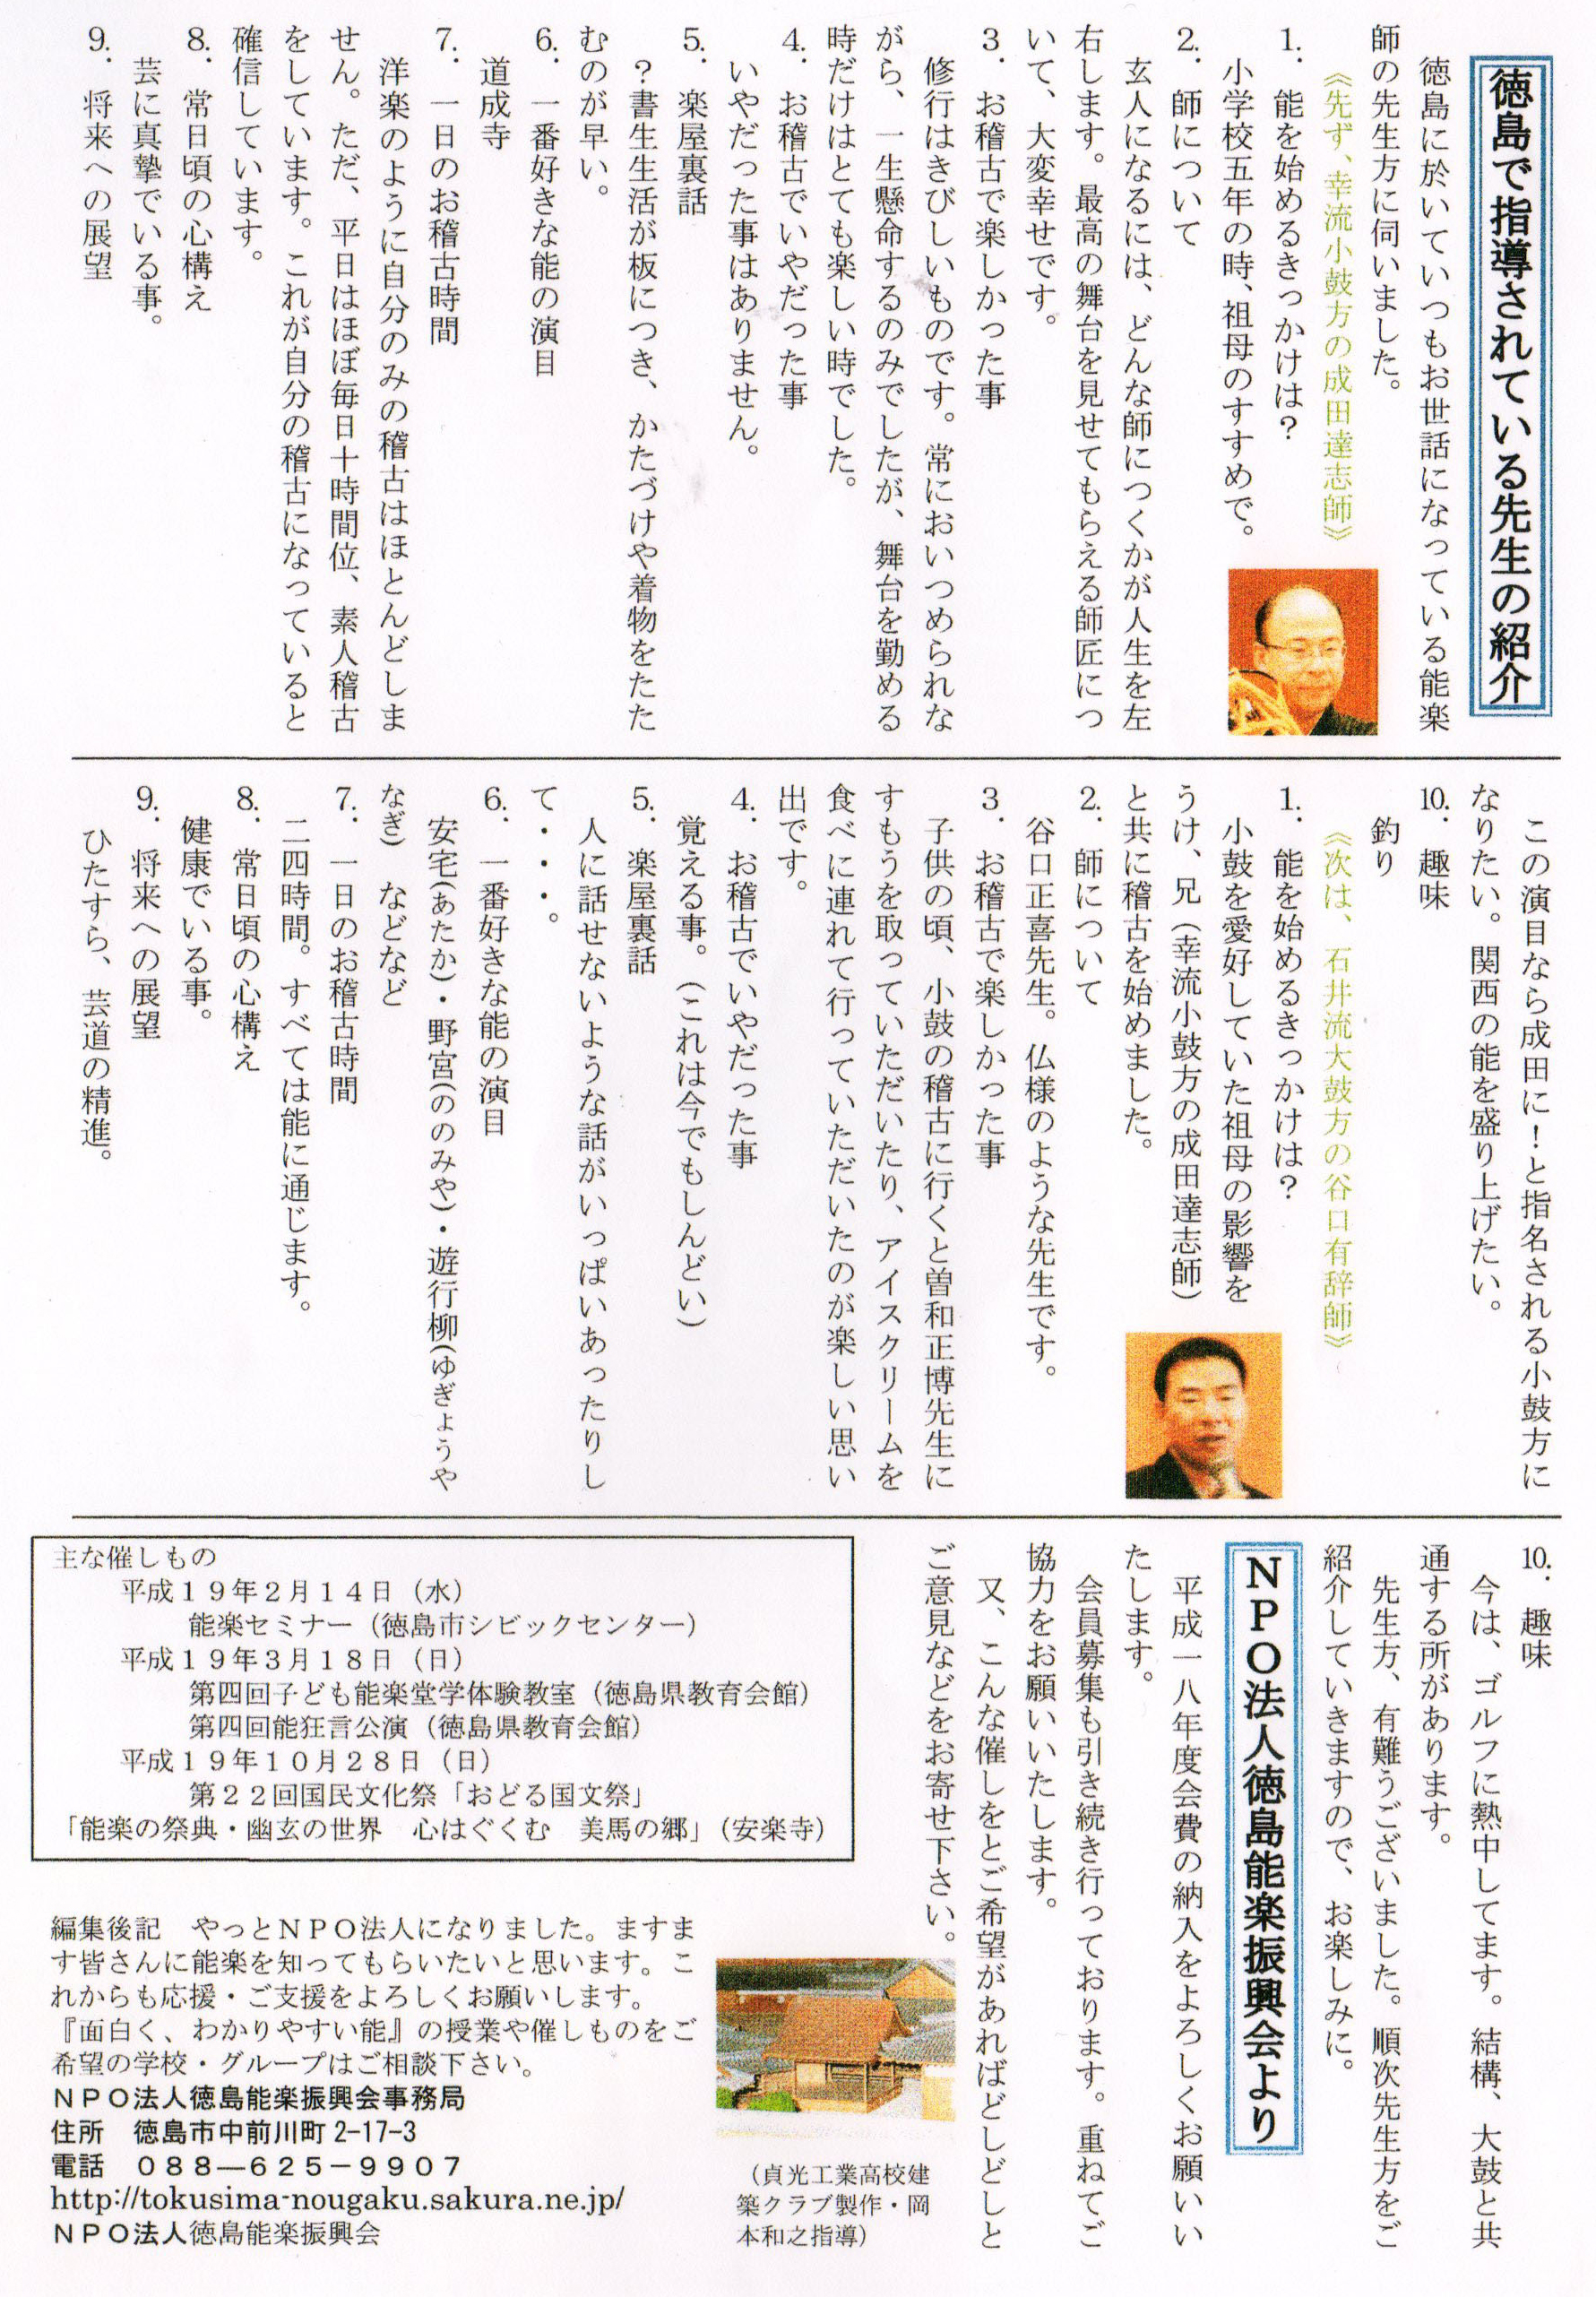 徳島で指導されている先生の紹介
徳島に於いていつもお世話になっている能楽
師の先生方に伺いました。
《先ず、幸流小鼓方の成田達志師》
1. 能を始めるきっかけは？
小学校五年の時、祖母のすすめで。
2. 師について
玄人になるには、どんな師につくかが人生を左
右します。最高の舞台を見せてもらえる師匠につ
いて、大変幸せです。
3. お稽古で楽しかった事
修行はきびしいものです。常においつめられな
がら、一生懸命するのみでしたが、舞台を勤める
時だけはとても楽しい時でした。
4. お稽古でいやだった事
いやだった事はありません。
5. 楽屋裏話
？書生生活が板につき、かたづけや着物をたた
むのが早い。
6. 一番好きな能の演目
道成寺
7. 一日のお稽古時間
洋楽のように自分のみの稽古はほとんどしま
せん。ただ、平日はほぼ毎日十時間位、素人稽古
をしています。これが自分の稽古になっていると
確信しています。
8. 常日頃の心構え
芸に真摯でいる事。
9. 将来への展望
この演目なら成田に！と指名される小鼓方に
なりたい。関西の能を盛り上げたい。
10. 趣味
釣り
《次は、石井流大鼓方の谷口有辞師》
1. 能を始めるきっかけは？
小鼓を愛好していた祖母の影響を
うけ、兄（幸流小鼓方の成田達志師）
と共に稽古を始めました。
2. 師について
谷口正喜先生。仏様のような先生です。
3. お稽古で楽しかった事
子供の頃、小鼓の稽古に行くと曽和正博先生に
すもうを取っていただいたり、アイスクリームを
食べに連れて行っていただいたのが楽しい思い
出です。
4. お稽古でいやだった事
覚える事。（これは今でもしんどい）
5. 楽屋裏話
人に話せないような話がいっぱいあったりし
て・・・。
6. 一番好きな能の演目
安宅(あたか)・野宮(ののみや)・遊行柳(ゆぎょうや
なぎ) などなど
7. 一日のお稽古時間
二四時間。すべては能に通じます。
8. 常日頃の心構え
健康でいる事。
9. 将来への展望
ひたすら、芸道の精進。
10. 趣味
今は、ゴルフに熱中してます。結構、大鼓と共
通する所があります。
先生方、有難うございました。順次先生方をご
紹介していきますので、お楽しみに。
ＮＰＯ法人徳島能楽振興会より
平成一八年度会費の納入をよろしくお願いい
たします。
会員募集も引き続き行っております。重ねてご
協力をお願いいたします。
又、こんな催しをとご希望があればどしどしと
ご意見などをお寄せ下さい。
主な催しもの
平成１９年２月１４日（水）
能楽セミナー（徳島市シビックセンター）
平成１９年３月１８日（日）
第四回子ども能楽堂学体験教室（徳島県教育会館）
第四回能狂言公演（徳島県教育会館）
平成１９年１０月２８日（日）
第２２回国民文化祭「おどる国文祭」
「能楽の祭典・幽玄の世界　心はぐくむ　美馬の郷」（安楽寺）
編集後記　やっとＮＰＯ法人になりました。ますま
す皆さんに能楽を知ってもらいたいと思います。こ
れからも応援・ご支援をよろしくお願いします。
『面白く、わかりやすい能』の授業や催しものをご
希望の学校・グループはご相談下さい。
ＮＰＯ法人徳島能楽振興会事務局
住所　徳島市中前川町 2-17-3
電話　０８８―６２５－９９０７
http://tokusima-nougaku.sakura.ne.jp/
ＮＰＯ法人徳島能楽振興会
（貞光工業高校建
築クラブ製作・岡
本和之指導）